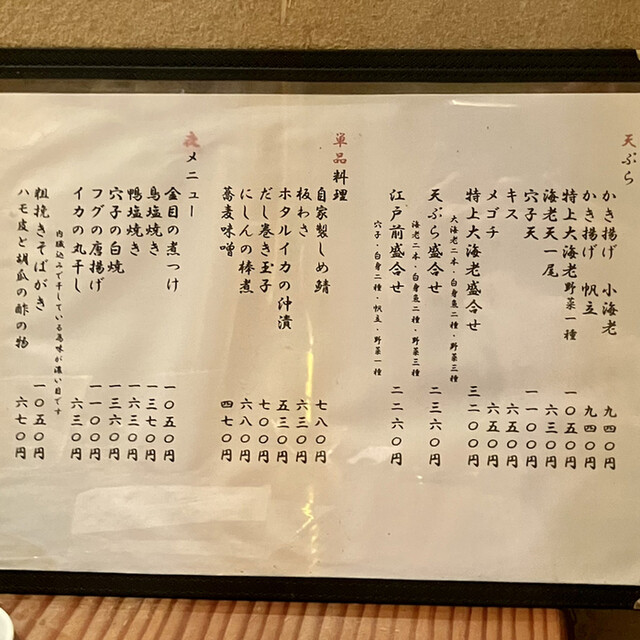 天ぷら
かき揚げ 小海老 九四〇円
かき揚げ 帆立 九四〇円
特上大海老野菜一種 一〇五〇円
海老天一尾 六三〇円
穴子天 一一〇〇円
キス 六五〇円
メゴチ 六五〇円
特上大海老盛合せ 三二〇〇円
大海老二本・白身魚二種・野菜三種
天ぷら盛合せ 二三六〇円
海老二本・白身魚二種・野菜三種
江戸前盛合せ 二二六〇円
穴子・白身二種・帆立・野菜一種
単品料理
自家製しめ鯖 七八〇円
板わさ 六三〇円
ホタルイカの沖漬 五三〇円
だし巻き玉子 七〇〇円
にしんの棒煮 六八〇円
蕎麦味噌 四七〇円
メニュー
金目の煮つけ 一〇五〇円
鳥塩焼き 一三七〇円
鴨塩焼き 一六三〇円
穴子の白焼 一三六〇円
フグの唐揚げ 一一〇〇円
イカの丸干し 六三〇円
内臓込みで干している為味が濃い目です
粗挽きそばがき 一〇五〇円
ハモ皮と胡瓜の酢の物 六七〇円